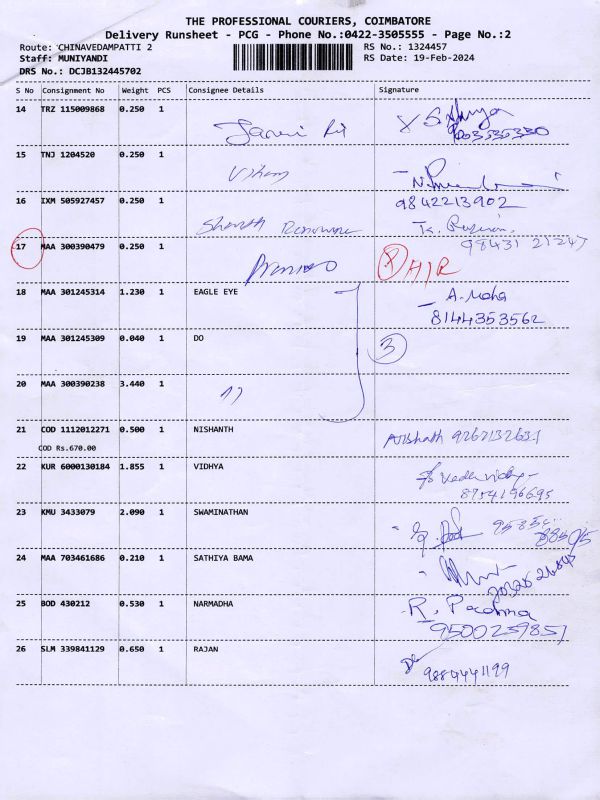 THE PROFESSIONAL COURIERS, COIMBATORE
Delivery Runsheet - PCG - Phone No.:0422-3505555 - Page No.:2
Route: CHINAVEDAMPATTI 2 RS No.: 1324457
Staff: MUNIYANDI RS Date: 19-Feb-2024
DRS No.: DCJB132445702
S No Consignment No Weight PCS Consignee Details Signature
14 TRZ 115009868 0.250 1
15 TNJ 1204520 0.250 1
16 IXM 505927457 0.250 1 9842213902
Sharath
98431 21247
17 MAA 300390479 0.250 1
18 MAA 301245314 1.230 1 EAGLE EYE A. Maha
8144353562
19 MAA 301245309 0.040 1 DO 3
20 MAA 300390238 3.440 1
21 COD 1112012271 0.500 1 NISHANTH
COD Rs.670.00
22 KUR 6000130184 1.855 1 VIDHYA
8754196695
23 KMU 3433079 2.090 1 SWAMINATHAN
24 MAA 703461686 0.210 1 SATHIYA BAMA
25 BOD 430212 0.530 1 NARMADHA R. Padma
26 SLM 339841129 0.650 1 RAJAN
9884441199